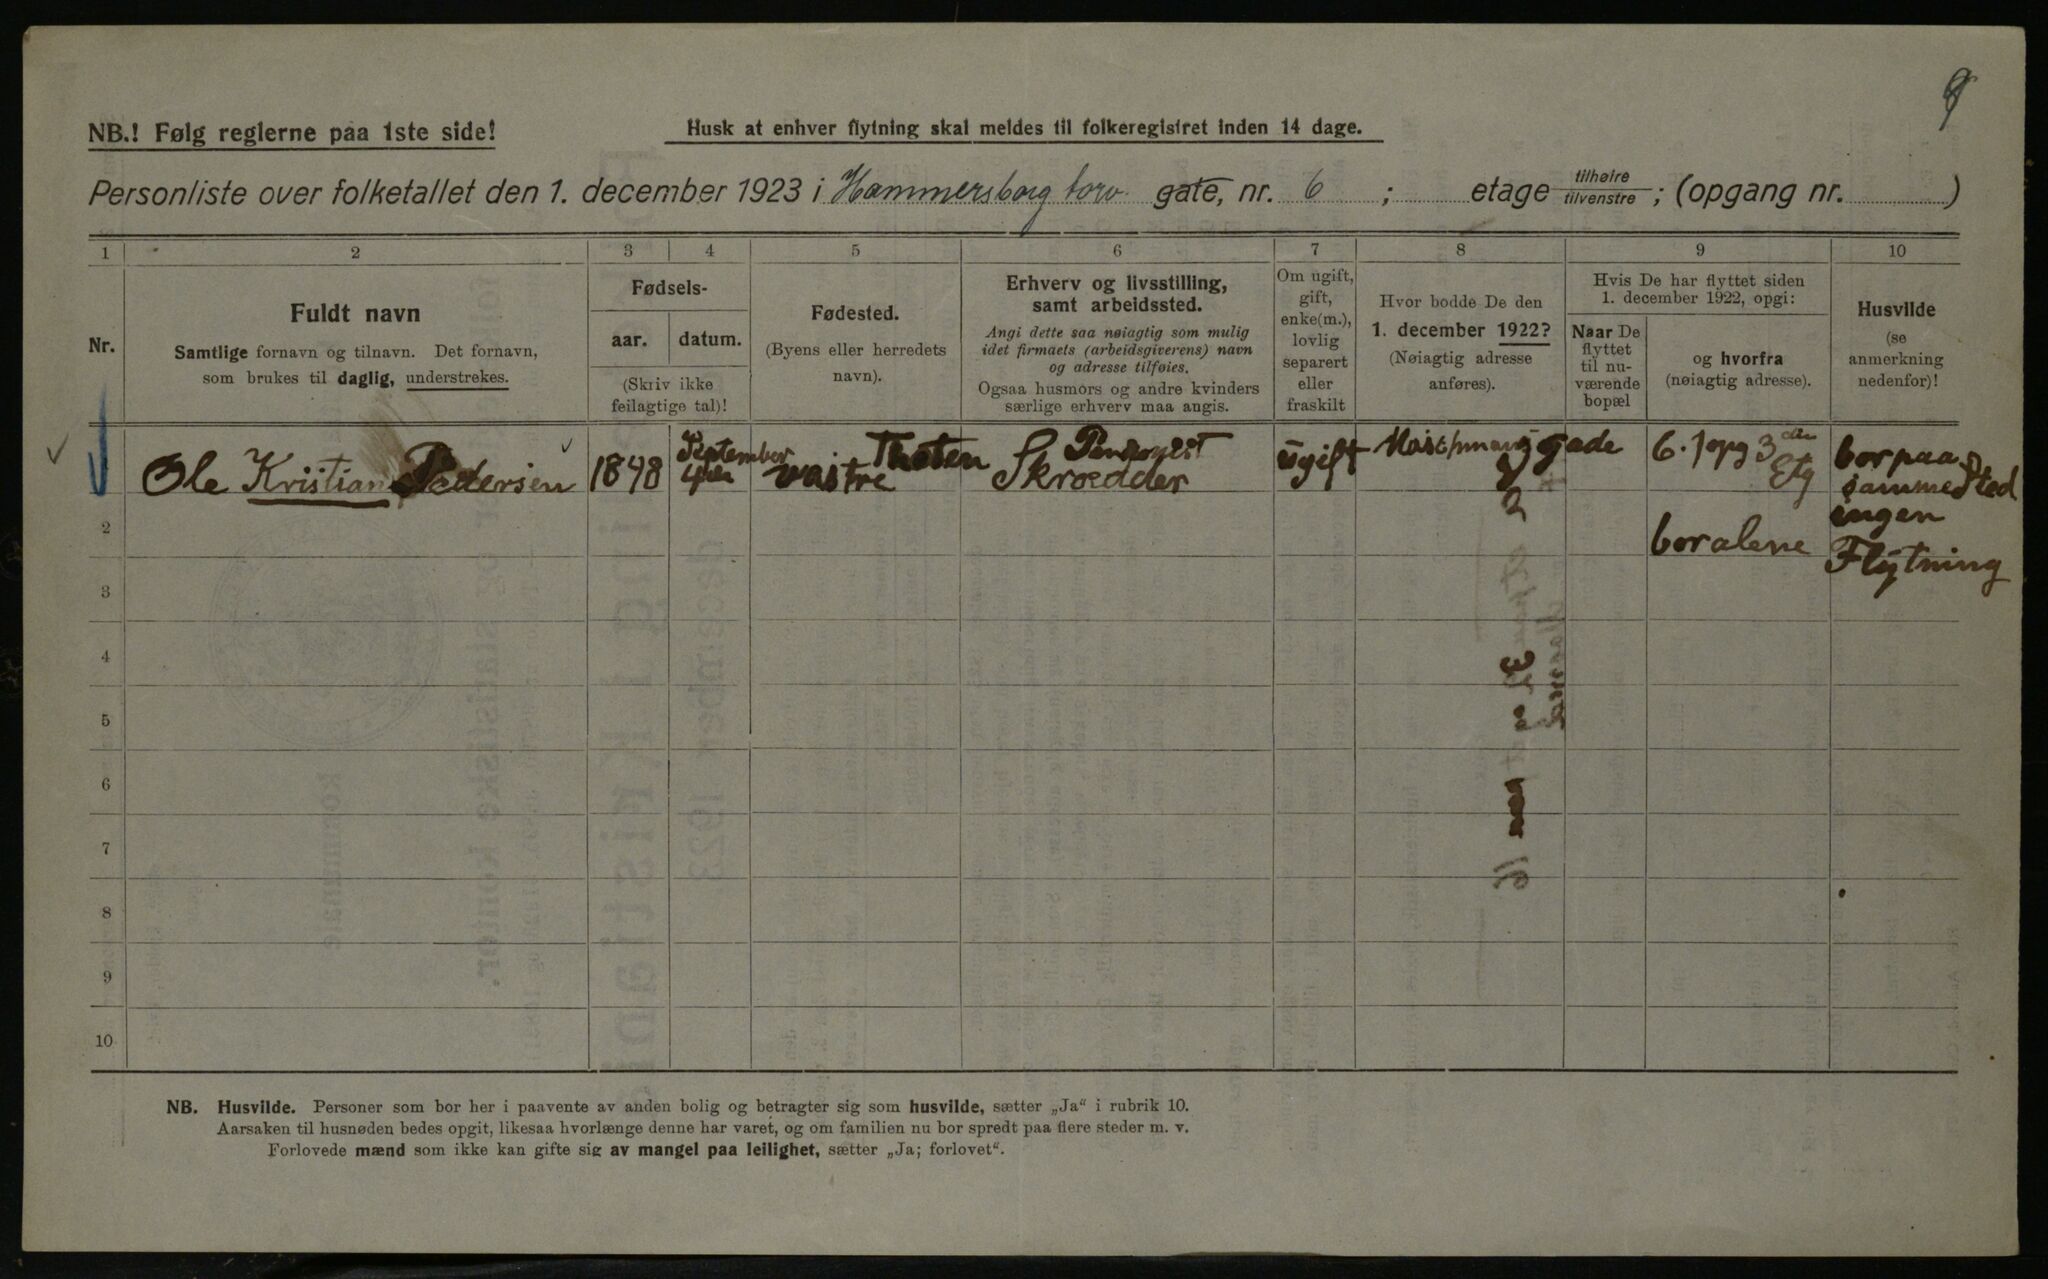 NB.! Følg reglerne paa 1ste side!
Husk at enhver flytning skal meldes til folkeregistret inden 14 dage.
Personliste over folketallet den 1. december 1923 i Hammersborg torv gate, nr. 6 ; etage tilhøire tilvenstre ; (opgang nr. )
1 2 3 4 5 6 7 8 9 10
Nr.
Fuldt navn
Samtlige fornavn og tilnavn. Det fornavn,
som brukes til daglig, understrekes.
Fødsels-
aar. datum.
(Skriv ikke
feilagtige tal)!
Fødested.
(Byens eller herredets
navn).
Erhverv og livsstilling,
samt arbeidssted.
Angi dette saa nøiagtig som mulig
idet firmaets (arbeidsgiverens) navn
og adresse tilføies.
Ogsaa husmors og andre kvinders
særlige erhverv maa angis.
Om ugift,
gift,
enke(m.),
lovlig
separert
eller
fraskilt
Hvor bodde De den
1. december 1922?
(Nøiagtig adresse
anføres).
Hvis De har flyttet siden
1. december 1922, opgi:
Naar De
flyttet
til nu-
værende
bopæl
og hvorfra
(nøiagtig adresse).
Husvilde
(se
anmerkning
nedenfor)!
Ole Kristian Pedersen 1848 September 4den vastre Thoten
Skrædder ugift gade 6. 1 opg 3die Etg
bor paa
samme Sted
ingen
Flytning
bor alene
2
3
4
5
6
7
8
9
10
NB. Husvilde. Personer som bor her i paavente av anden bolig og betragter sig som husvilde, sætter „Ja" i rubrik 10.
Aarsaken til husnøden bedes opgit, likesaa hvorlænge denne har varet, og om familien nu bor spredt paa flere steder m. v.
Forlovede mænd som ikke kan gifte sig av mangel paa leilighet, sætter „Ja; forlovet".